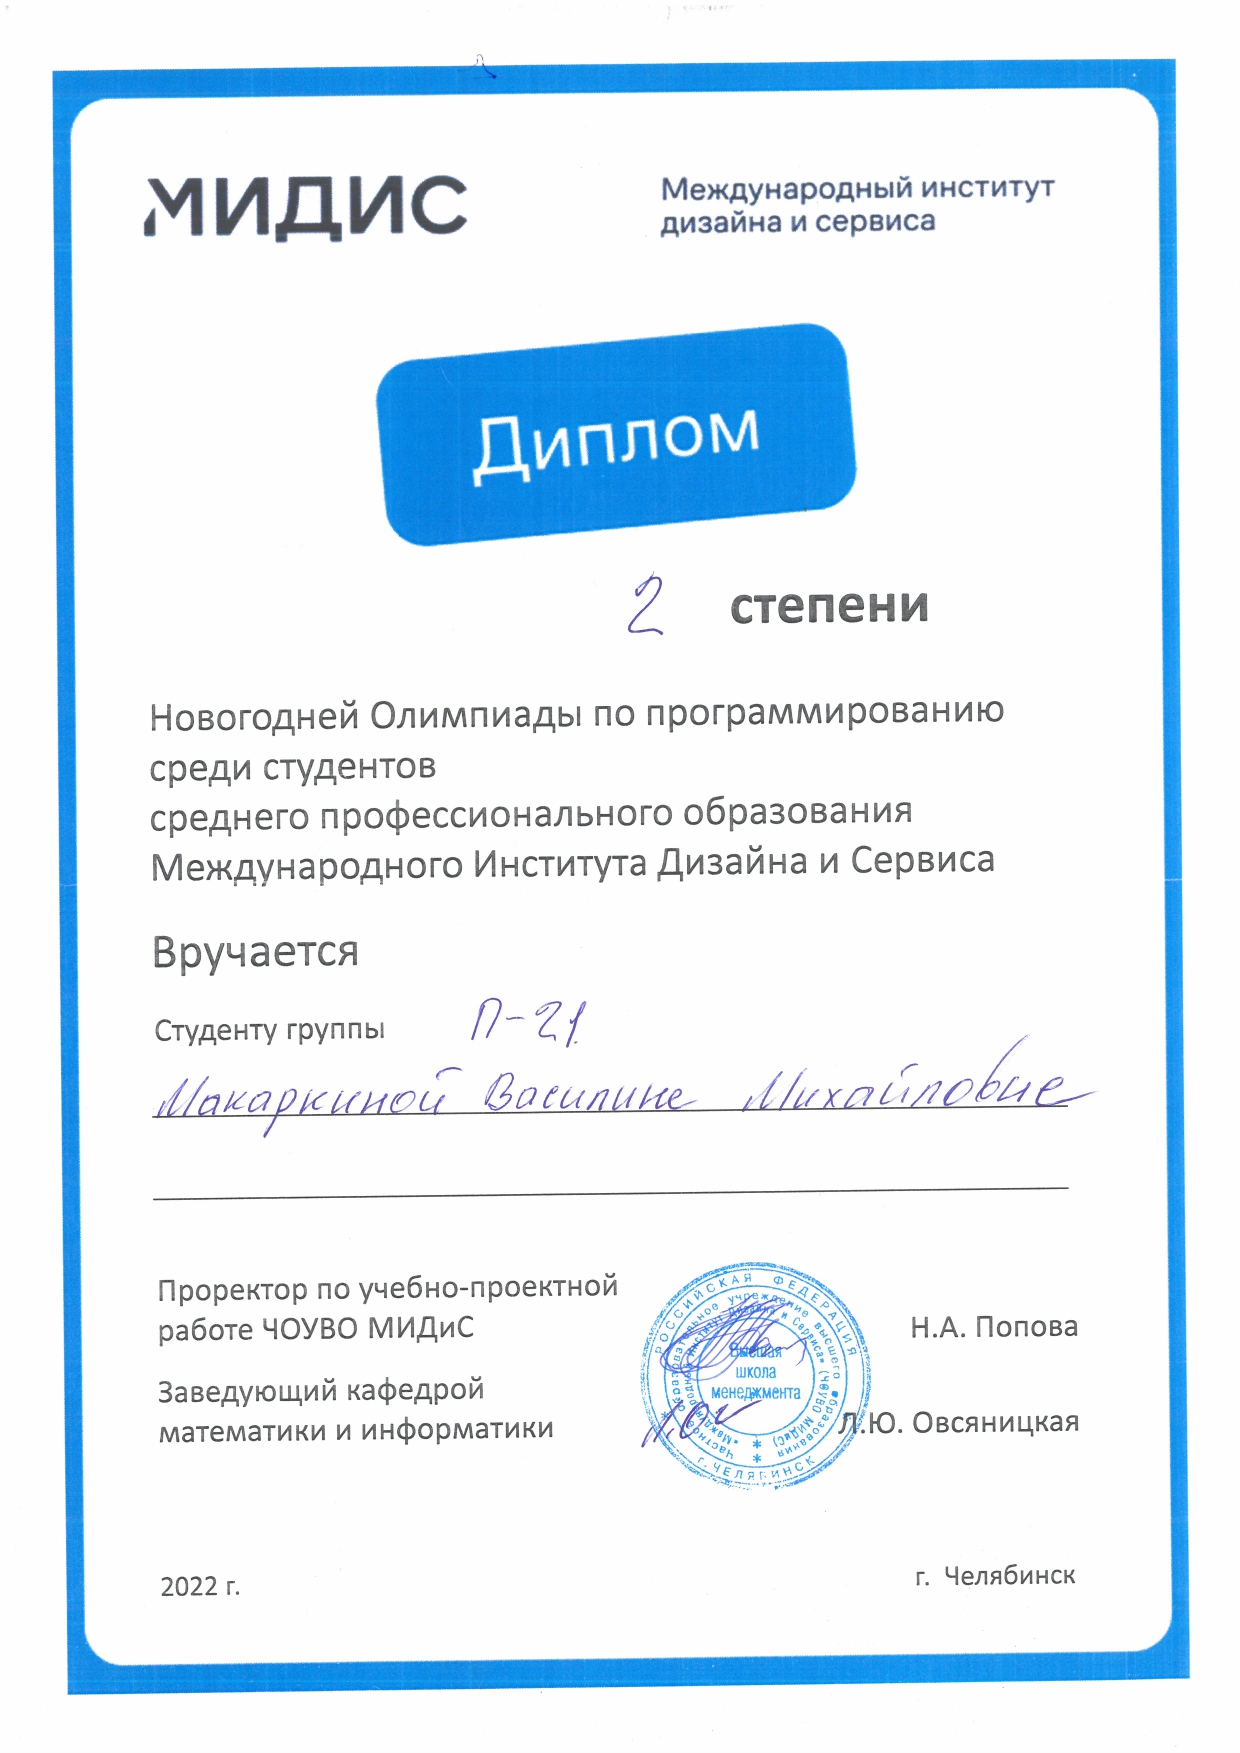 МИДИС
Международный институт
дизайна и сервиса
Диплом
2 степени
Новогодней Олимпиады по программированию
среди студентов
среднего профессионального образования
Международного Института Дизайна и Сервиса
Вручается
Студенту группы П-21
Макаркиной Василине Михайловне
Проректор по учебно-проектной
работе ЧОУВО МИДиС
Н.А. Попова
Заведующий кафедрой
математики и информатики
Л.Ю. Овсяницкая
РОССИЙСКАЯ ФЕДЕРАЦИЯ
г. ЧЕЛЯБИНСК
Частное образовательное учреждение высшего образования
«Международный Институт Дизайна и Сервиса» (ЧОУВО МИДиС)
Высшая
школа
менеджмента
2022 г.
г. Челябинск